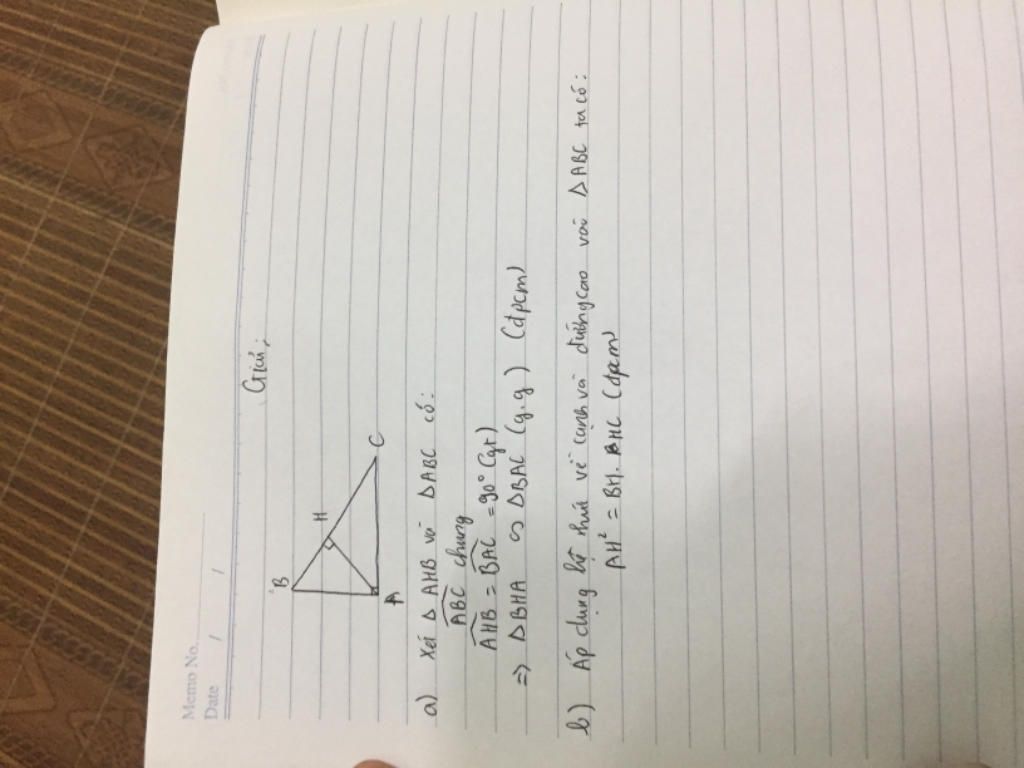 Memo No.
Date / /
Giải:
B
H
A
C
a) Xét Δ AHB và Δ ABC có:
ABC chung
AHB = BAC = 90° (gt)
=> Δ BHA ∽ Δ BAC (g.g) (đpcm)
b) Áp dụng hệ thức về cạnh và đường cao vào Δ ABC ta có:
AH² = BH. HC (đpcm)